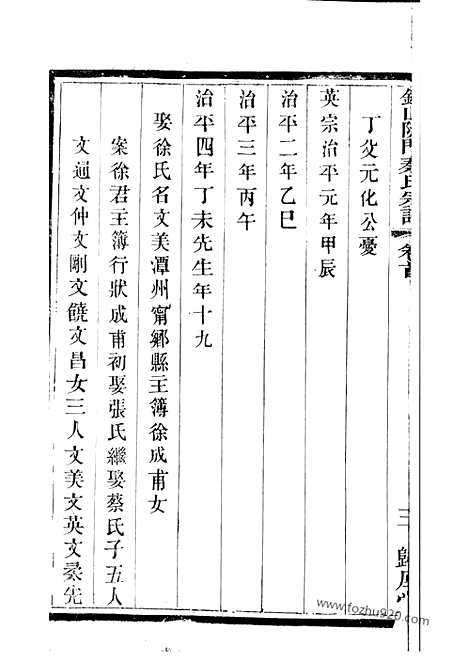 丁父元化公憂
英宗治平元年甲辰
治平二年乙巳
治平三年丙午
治平四年丁未先生年十九
娶徐氏名文美潭州甯鄉縣主簿徐成甫女
案徐君主簿行狀成甫初娶張氏繼娶蔡氏子五人
文通文仲文剛文饒文昌女三人文美文英文柔先
三
www.fozhu920.com